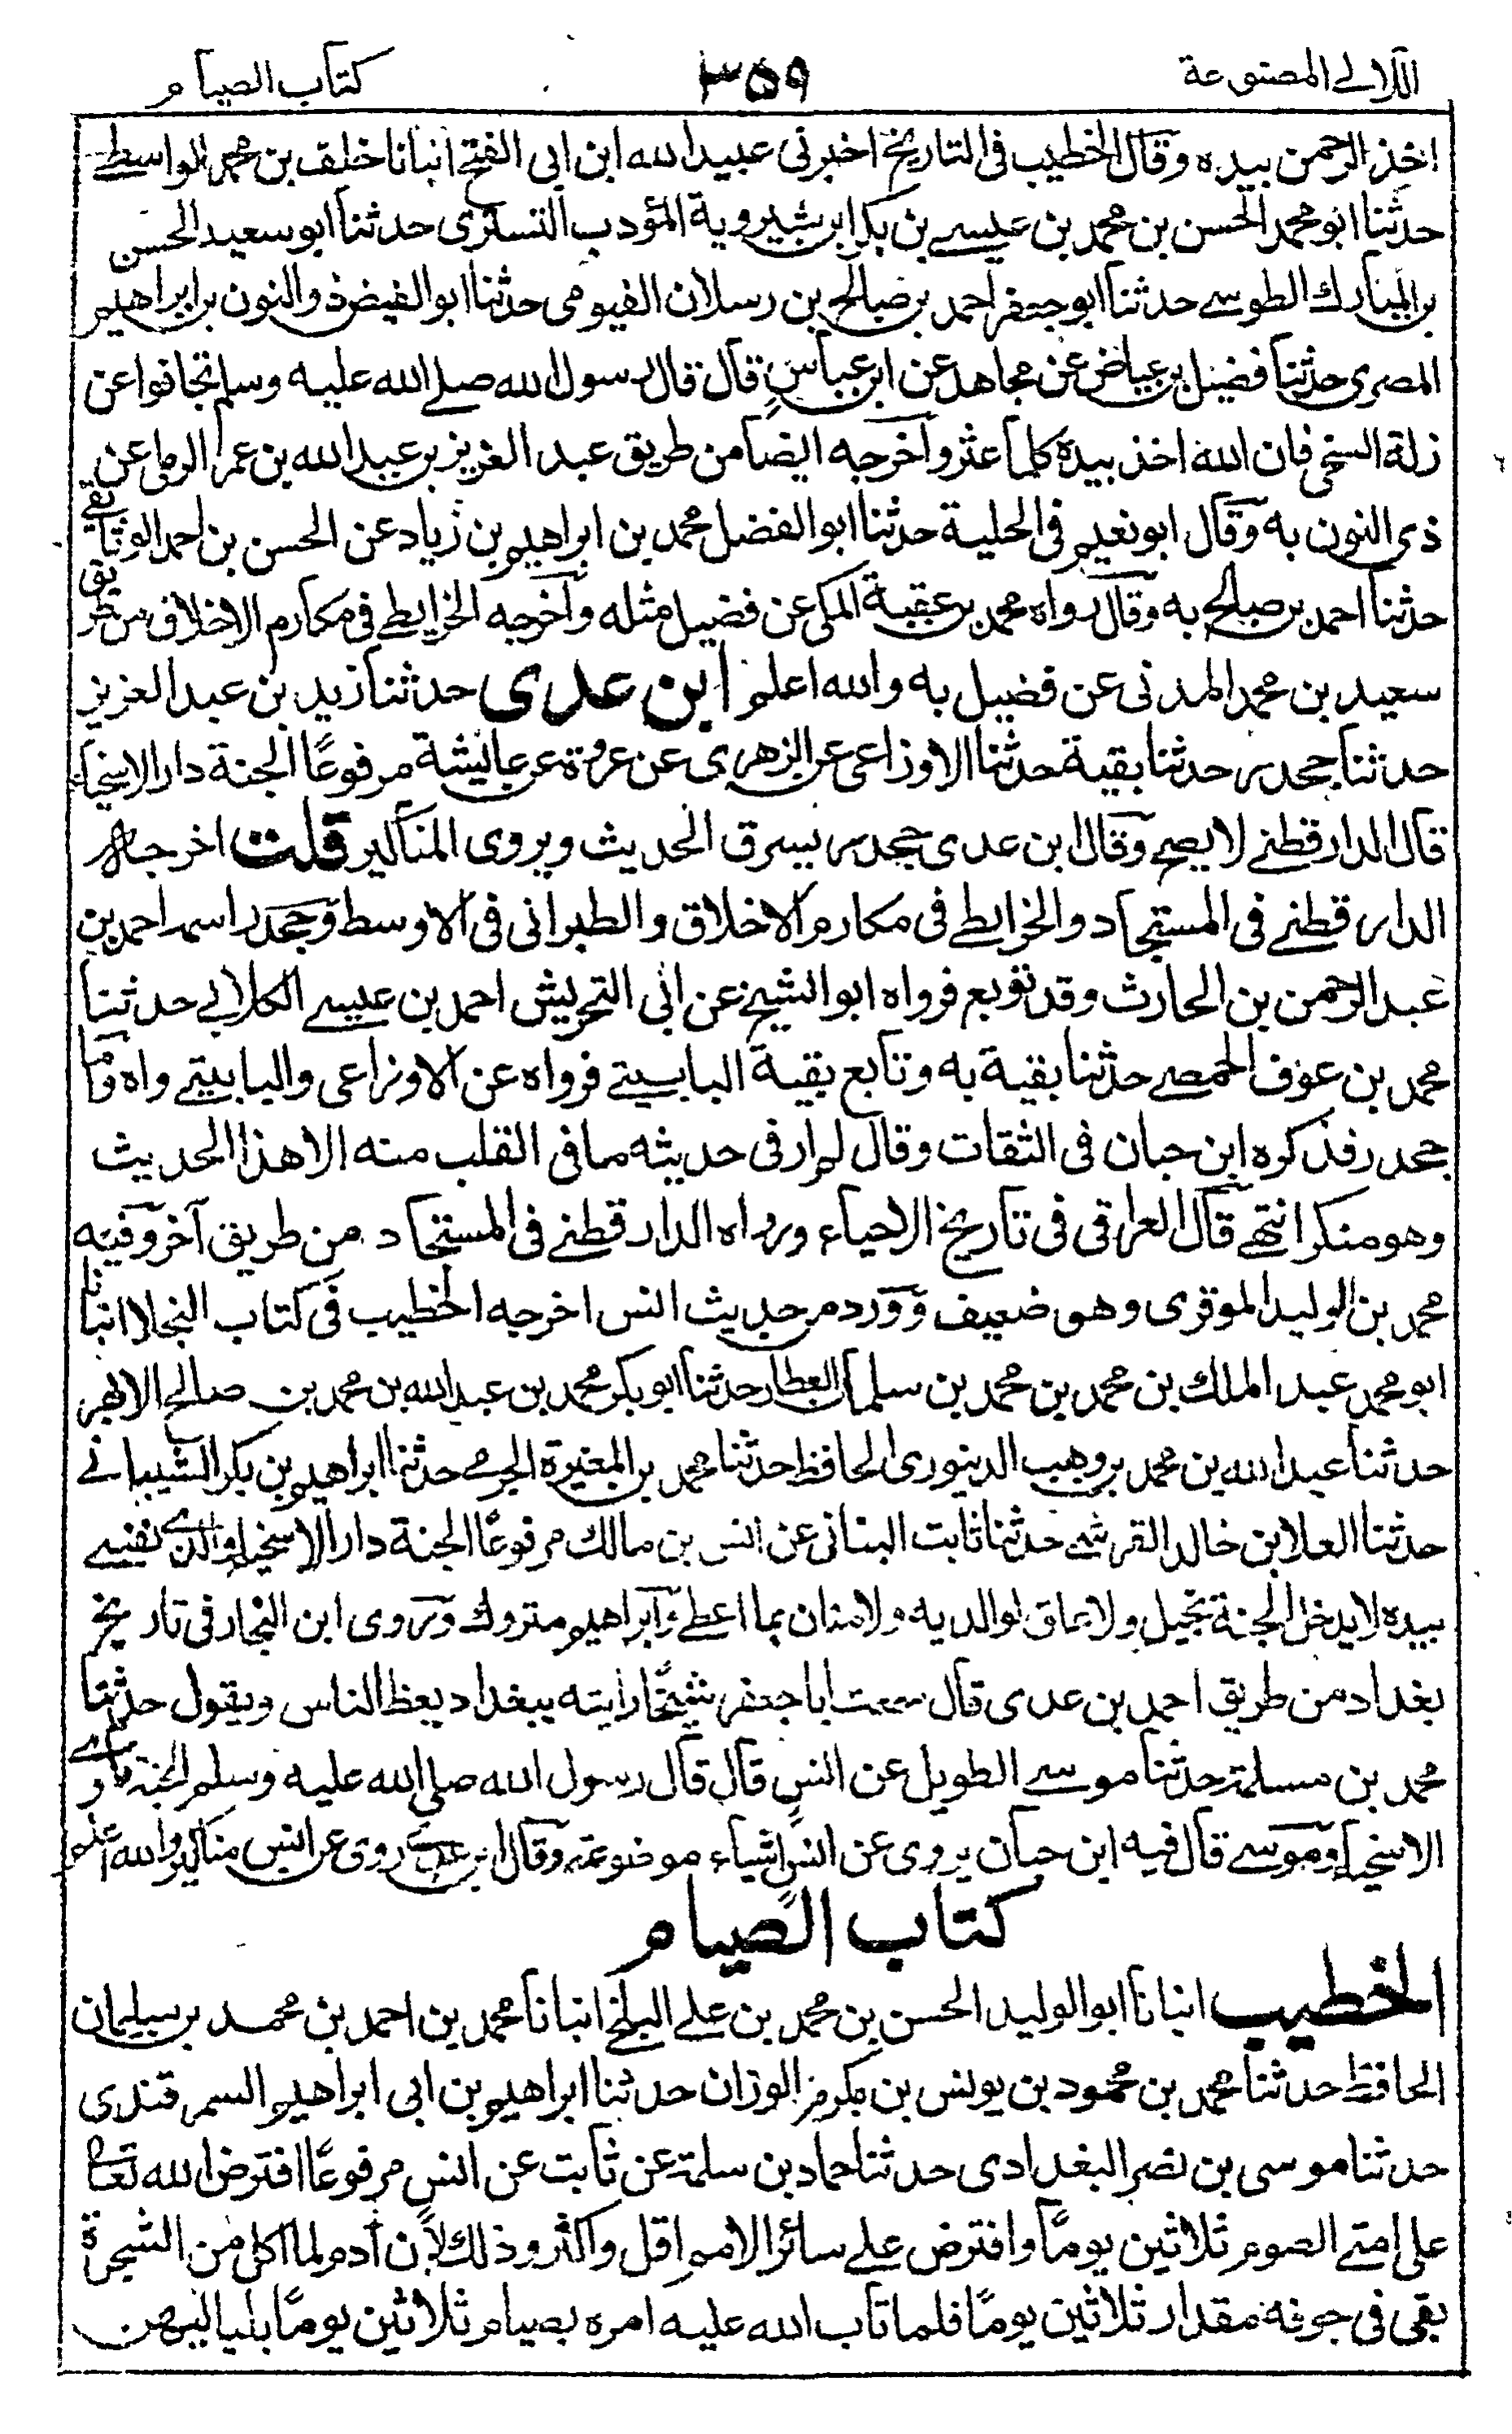 اللآلے المصنوعة
٣٥٩
كتاب الصيام
اخذ الرحمن بيده وقال الخطيب فى التاريخ اخبرنى عبيد الله ابن ابى الفتح انبانا خلف بن محمد الواسطے
حدثنا ابو محمد الحسن بن محمد بن عيسے بن بكر ابن شيروية المؤدب التسترى حدثنا ابو سعيد الحسن
بن المبارك الطوسے حدثنا ابو جعفر احمد بن صالح بن رسلان الفيومى حدثنا ابو الفيض ذو النون بن ابراهيم
المصرى حدثنا فضيل بن عياض عن مجاهد عن ابن عباس قال قال رسول الله صلے الله عليه وسلم تجافوا عن
زلة السخى فان الله اخذ بيده كلما عثر واخرجه ايضا من طريق عبد العزيز بن عبد الله بن عمر الرملى عن
ذى النون به وقال ابو نعيم فى الحلية حدثنا ابو الفضل محمد بن ابراهيم بن زياد عن الحسن بن احمد الوثائقے
حدثنا احمد بن صالح به وقال رواه محمد بن عقبة المكى عن فضيل مثله واخرجه الخرايطے فى مكارم الاخلاق من طريق
سعيد بن محمد المدنى عن فضيل به والله اعلم ابن عدى حدثنا زيد بن عبد العزيز
حدثنا جحدر حدثنا بقية حدثنا الاوزاعى عن الزهرى عن عروة عن عايشة مرفوعًا الجنة دار الاسخياء
قال الدارقطنے لا يصح وقال ابن عدى جحدر يسرق الحديث ويروى المناكير قلت اخرجه
الدارقطنے فى المستجاد والخرايطے فى مكارم الاخلاق والطبرانى فى الاوسط وجحدر اسمه احمد بن
عبد الرحمن بن الحارث وقد توبع فرواه ابو الشيخ عن ابى التحريش احمد بن عيسے الكلابے حدثنا
محمد بن عوف الحمصے حدثنا بقية به وتابع بقية البابيتے فرواه عن الاوزاعى والبابيتے واه واما
جحدر فذكره ابن حبان فى الثقات وقال لم ار فى حديثه ما فى القلب منه الا هذا الحديث
وهو منكر انتهے قال العراقى فى تاريخ الاحياء ورواه الدارقطنے فى المستجاد من طريق آخر وفيه
محمد بن الوليد الموقرى وهو ضعيف وورد من حديث انس اخرجه الخطيب فى كتاب البخلا انبانا
ابو محمد عبد الملك بن محمد بن محمد بن سلمان العطار حدثنا ابو بكر محمد بن عبد الله بن محمد بن صالح الابهر
حدثنا عبد الله بن محمد بن وهب الدينورى الحافظ حدثنا محمد بن المغيرة الجرمے حدثنا ابراهيم بن بكر الشيبانے
حدثنا العلا بن خالد القرشے حدثنا ثابت البنانى عن انس بن مالك مرفوعًا الجنة دار الاسخياء والذے نفسے
بيده لا يدخل الجنة بخيل ولا عاق لوالديه ولا منان بما اعطے وابراهيم متروك وروى ابن النجار فى تاريخ
بغداد من طريق احمد بن عدى قال سمعت ابا جعفر شيخًا رايته ببغداد يعظ الناس ويقول حدثنا
محمد بن مسلمة حدثنا موسے الطويل عن انس قال قال رسول الله صلى الله عليه وسلم الجنة ماوے
الاسخياء وموسے قال فيه ابن حبان يروى عن انس اشياء موضوعة وقال ابن عدے روى عن انس مناكير والله اعلم
كتاب الصيام
الخطيب انبانا ابو الوليد الحسن بن محمد بن علے البلخے انبانا محمد بن احمد بن محمد بن سليمان
الحافظ حدثنا محمد بن محمود بن يونس بن مكرم الوزان حدثنا ابراهيم بن ابى ابراهيم السمرقندى
حدثنا موسى بن نصر البغدادى حدثنا حماد بن سلمة عن ثابت عن انس مرفوعًا افترض الله تعالى
على امتے الصوم ثلاثين يومًا وافترض علے سائر الامم اقل واكثر وذلك لأن آدم لما اكل من الشجرة
بقى فى جوفه مقدار ثلاثين يومًا فلما تاب الله عليه امره بصيام ثلاثين يومًا بلياليهن